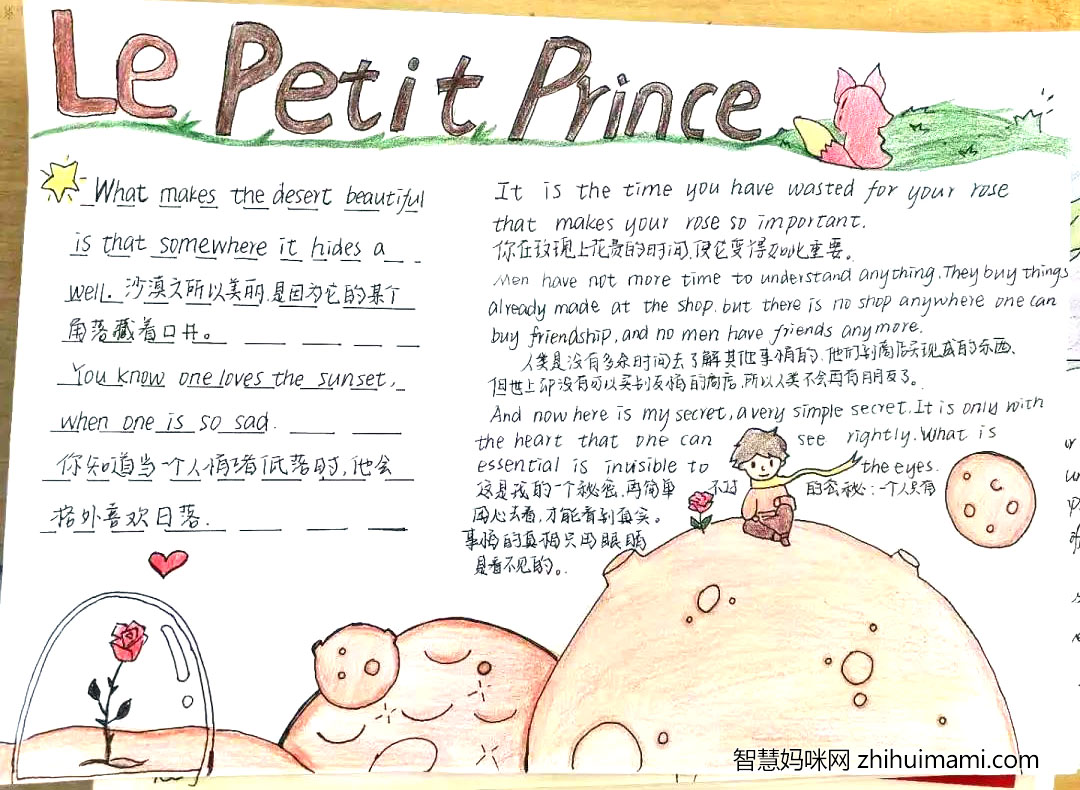 Le Petit Prince
What makes the desert beautiful
is that somewhere it hides a
well. 沙漠之所以美丽,是因为它的某个
角落藏着口井。
You know one loves the sunset,
when one is so sad.
你知道当一个人情绪低落时,他会
格外喜欢日落.
It is the time you have wasted for your rose
that makes your rose so important.
你在玫瑰上花费的时间,使它变得如此重要。
Men have not more time to understand anything. They buy things
already made at the shop. but there is no shop anywhere one can
buy friendship, and no men have friends anymore.
人类是没有多余时间去了解其他事情的.他们到商店买现成的东西、
但世上却没有可以买到友情的商店,所以人类不会再有朋友了。
And now here is my secret, a very simple secret. It is only with
the heart that one can see rightly. What is
essential is invisible to the eyes.
这是我的一个秘密,再简单不过的秘密:一个人只有
用心去看,才能看到真实。
事情的真相只用眼睛
是看不见的。
智慧妈咪网 zhihuimami.com